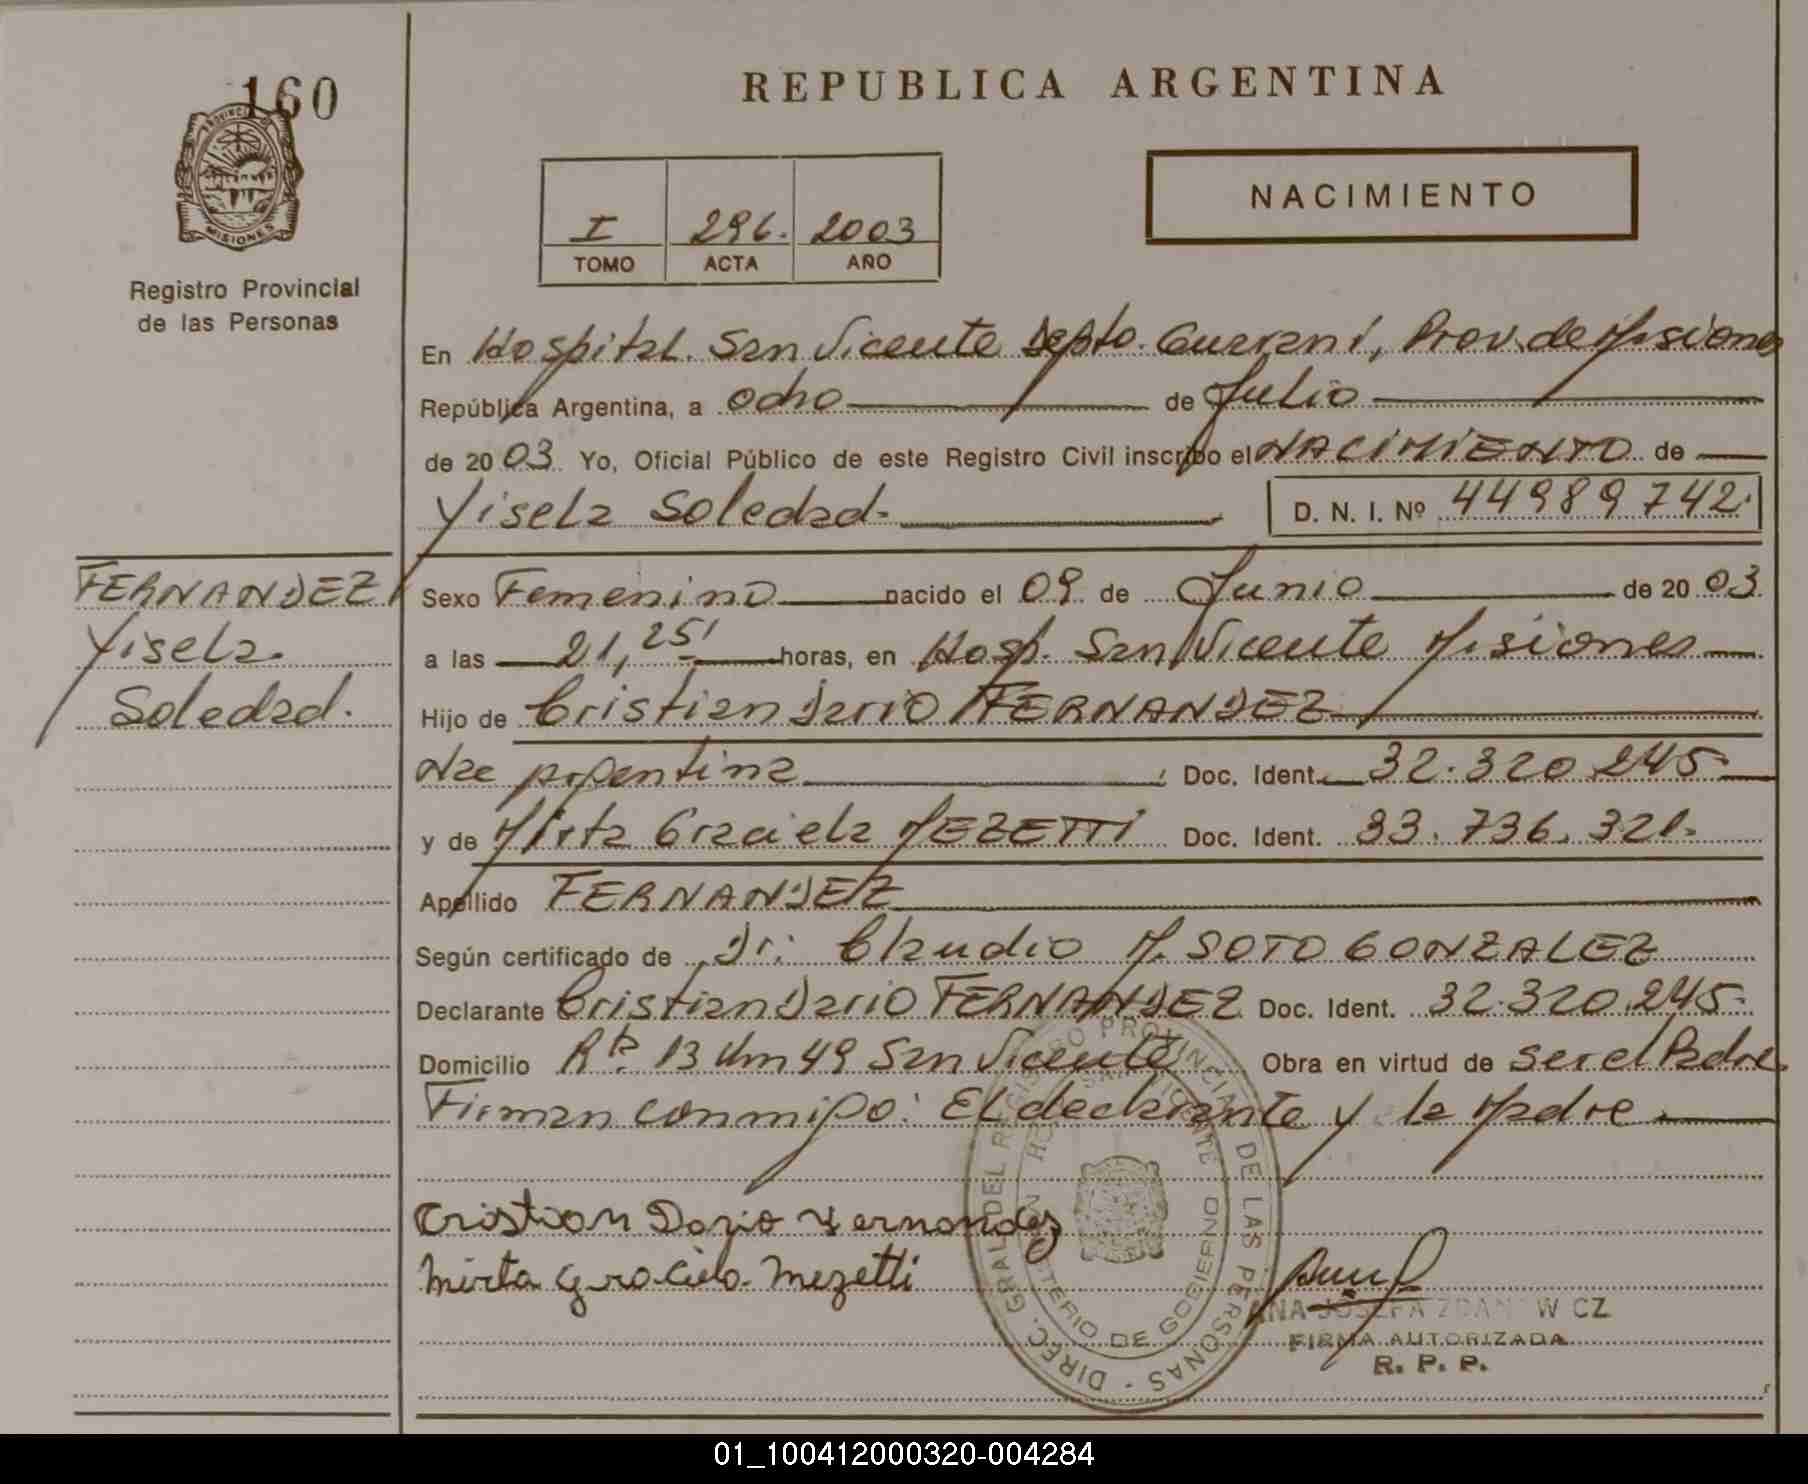 160
PROVINCIA DE
MISIONES
Registro Provincial
de las Personas
FERNANDEZ
Yisela
Soledad.
REPUBLICA ARGENTINA
I 296. 2003
TOMO ACTA AÑO
NACIMIENTO
En Hospital San Vicente Depto. Guaraní, Prov. de Misiones
República Argentina, a ocho de Julio
de 2003 Yo, Oficial Público de este Registro Civil inscribo el NACIMIENTO de
Yisela Soledad. D. N. I. Nº 44989742.
Sexo Femenino nacido el 09 de Junio de 2003
a las 21,25' horas, en Hosp. San Vicente Misiones
Hijo de Cristian Dario FERNANDEZ
Nac Argentina Doc. Ident. 32.320.245
y de Mirta Graciela MEZETTI Doc. Ident. 33.736.321.
Apellido FERNANDEZ
Según certificado de Dr. Claudio M. SOTO GONZALEZ
Declarante Cristian Dario FERNANDEZ Doc. Ident. 32.320.245.
Domicilio Rta. 13 Km 49 San Vicente Obra en virtud de ser el Padre.
Firman conmigo: El declarante y la Madre
Cristian Dario Fernandez
Mirta Graciela Mezetti
DIREC. GRAL. DEL REGISTRO PROVINCIAL DE LAS PERSONAS
SAN VICENTE
DE GOBIERNO
ANA JOSEFA
FIRMA AUTORIZADA
R. P. P.
01_100412000320-004284